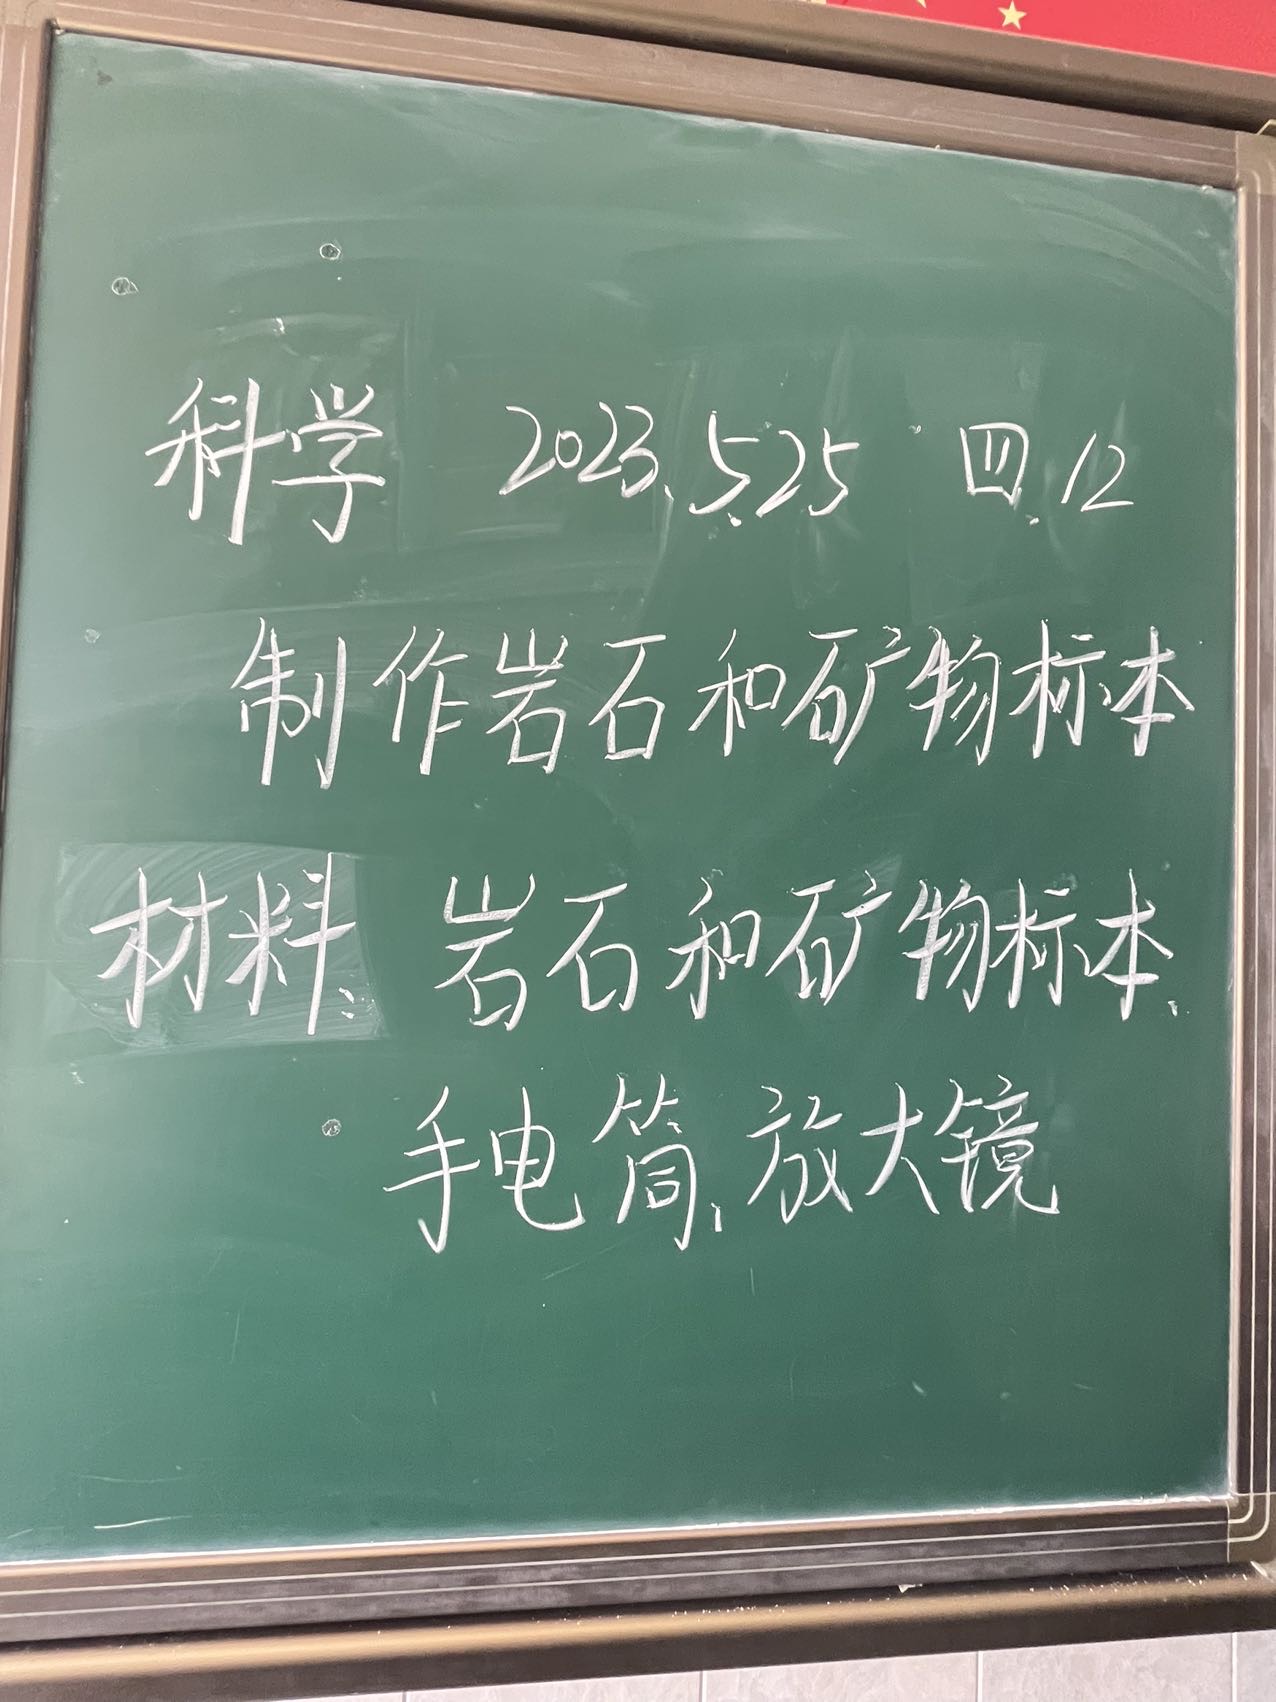 科学 2023.5.25 四.12
制作岩石和矿物标本
材料: 岩石和矿物标本、
手电筒、放大镜